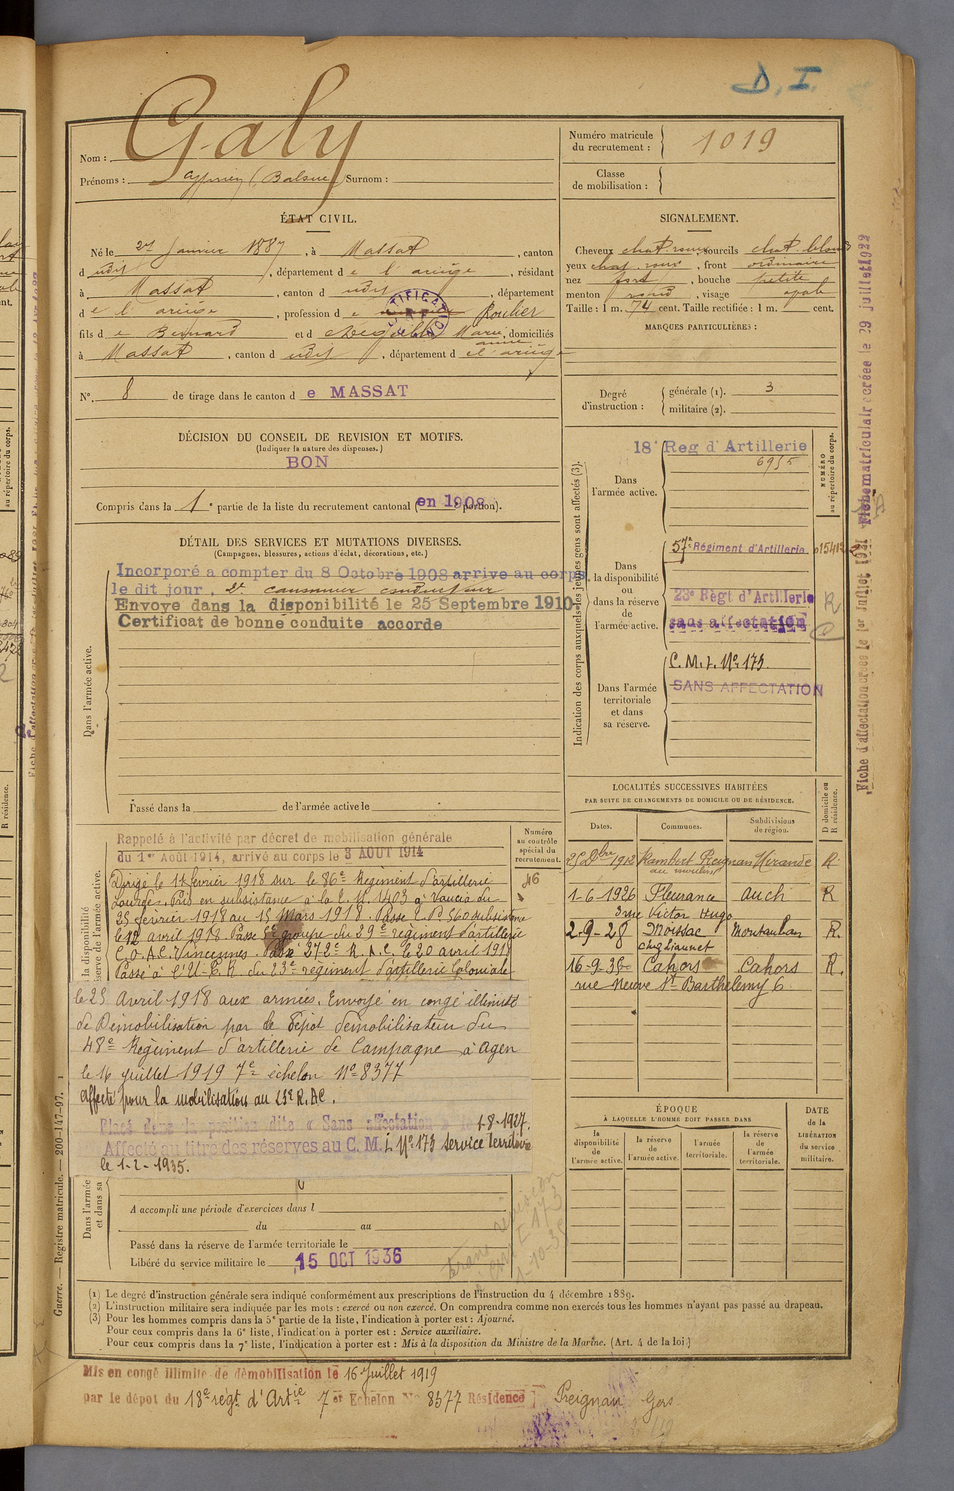 D. I.
Nom : Galy
Prénoms : Surnom :
Numéro matricule du recrutement : 1019
Classe de mobilisation :
ÉTAT CIVIL.
Né le 27 Janvier 1887, à Massat, canton
d udit, département d e l'ariège, résidant
à Massat, canton d udit, département
d e l'ariège, profession d e Roulier
fils d e Bernard et d Marie, domiciliés
anne
à Massat, canton d udit, département d e l'ariège
N° 8 de tirage dans le canton d e MASSAT
DÉCISION DU CONSEIL DE REVISION ET MOTIFS.
(Indiquer la nature des dispenses.)
BON
Compris dans la 1e partie de la liste du recrutement cantonal (en 1908 portion).
SIGNALEMENT.
Cheveux chat roux, sourcils chat blond
yeux chat roux, front ordinaire
nez fort, bouche petite
menton rond, visage ovale
Taille : 1 m. 74 cent. Taille rectifiée : 1 m. cent.
MARQUES PARTICULIÈRES :
Degré d'instruction : générale (1). 3
militaire (2).
DÉTAIL DES SERVICES ET MUTATIONS DIVERSES.
(Campagnes, blessures, actions d'éclat, décorations, etc.)
Dans l'armée active.
Incorporé a compter du 8 Octobre 1908 arrive au corps
le dit jour, 2e canonnier conducteur
Envoye dans la disponibilité le 25 Septembre 1910
Certificat de bonne conduite accorde
Passé dans la de l'armée active le
Indication des corps auxquels les jeunes gens sont affectés (3).
NUMÉRO au répertoire du corps.
Dans l'armée active.
18e Reg d'Artillerie
6955
Dans la disponibilité ou dans la réserve de l'armée active.
57e Régiment d'Artillerie
23e Régt d'Artillerie
sans affectation
R
Dans l'armée territoriale et dans sa réserve.
C. M. I. N° 173
SANS AFFECTATION
Fiche matriculair ecréée le 29 juillet 1922
Fiche d'affectation créée le 1er juillet 1931
la disponibilité
réserve de l'armée active.
Numéro au contrôle spécial du recrutement.
Rappelé à l'activité par décret de mobilisation générale
du 1er Août 1914, arrivé au corps le 3 AOUT 1914
Dirigé le 14 février 1918 sur le 86e Régiment d'artillerie
Lourde. Mis en subsistance à la C. M. 1403 à Vaucia du
25 février 1918 au 15 Mars 1918. Passé
le 12 avril 1918 Passé groupe du 29e régiment d'artillerie
C.O.A.C. Vincennes. Passé 272e R.A.C. le 20 avril 1918
Passé à l'U.F.R. du 23e régiment d'artillerie Coloniale
le 25 Avril 1918 aux armées. Envoyé en congé illimité
de Démobilisation par le Dépot démobilisateur du
48e Régiment d'artillerie de Campagne à Agen
le 16 juillet 1919 7e échelon N° 8377
Affecté pour la mobilisation au 23e R.AC.
Placé dans la position dite « Sans affectation » le 1-8-1927.
Affecté au titre des réserves au C. M. I N° 173 service Territoire
le 1-2-1935.
Dans l'armée et dans sa
A accompli une période d'exercices dans l
du au
Passé dans la réserve de l'armée territoriale le
Libéré du service militaire le 15 OCT 1936
LOCALITÉS SUCCESSIVES HABITÉES
PAR SUITE DE CHANGEMENTS DE DOMICILE OU DE RÉSIDENCE.
D domicile ou R résidence.
Dates. Communes. Subdivisions de région.
Rambert Preignan Mirande R
au moulin
1-6-1926 Fleurance auch R
3 rue Victor Hugo
2-9-28 Moissac Montauban R.
16-9-35 Cahors Cahors R.
rue Neuve St Barthélemy 6
ÉPOQUE
À LAQUELLE L'HOMME DOIT PASSER DANS
DATE de la LIBÉRATION du service militaire.
la disponibilité de l'armée active.
la réserve de l'armée active.
l'armée territoriale.
la réserve de l'armée territoriale.
(1) Le degré d'instruction générale sera indiqué conformément aux prescriptions de l'instruction du 4 décembre 1889.
(2) L'instruction militaire sera indiquée par les mots : exercé ou non exercé. On comprendra comme non exercés tous les hommes n'ayant pas passé au drapeau.
(3) Pour les hommes compris dans la 5e partie de la liste, l'indication à porter est : Ajourné.
Pour ceux compris dans la 6e liste, l'indication à porter est : Service auxiliaire.
Pour ceux compris dans la 7e liste, l'indication à porter est : Mis à la disposition du Ministre de la Marine. (Art. 4 de la loi.)
Guerre. — Registre matricule. — 200-147-97.
Mis en congé illimite de démobilisation le 16 Juillet 1919
par le dépot du 18e régt d'Artie 7er Echelon No 8377 Résidence Preignan Gers